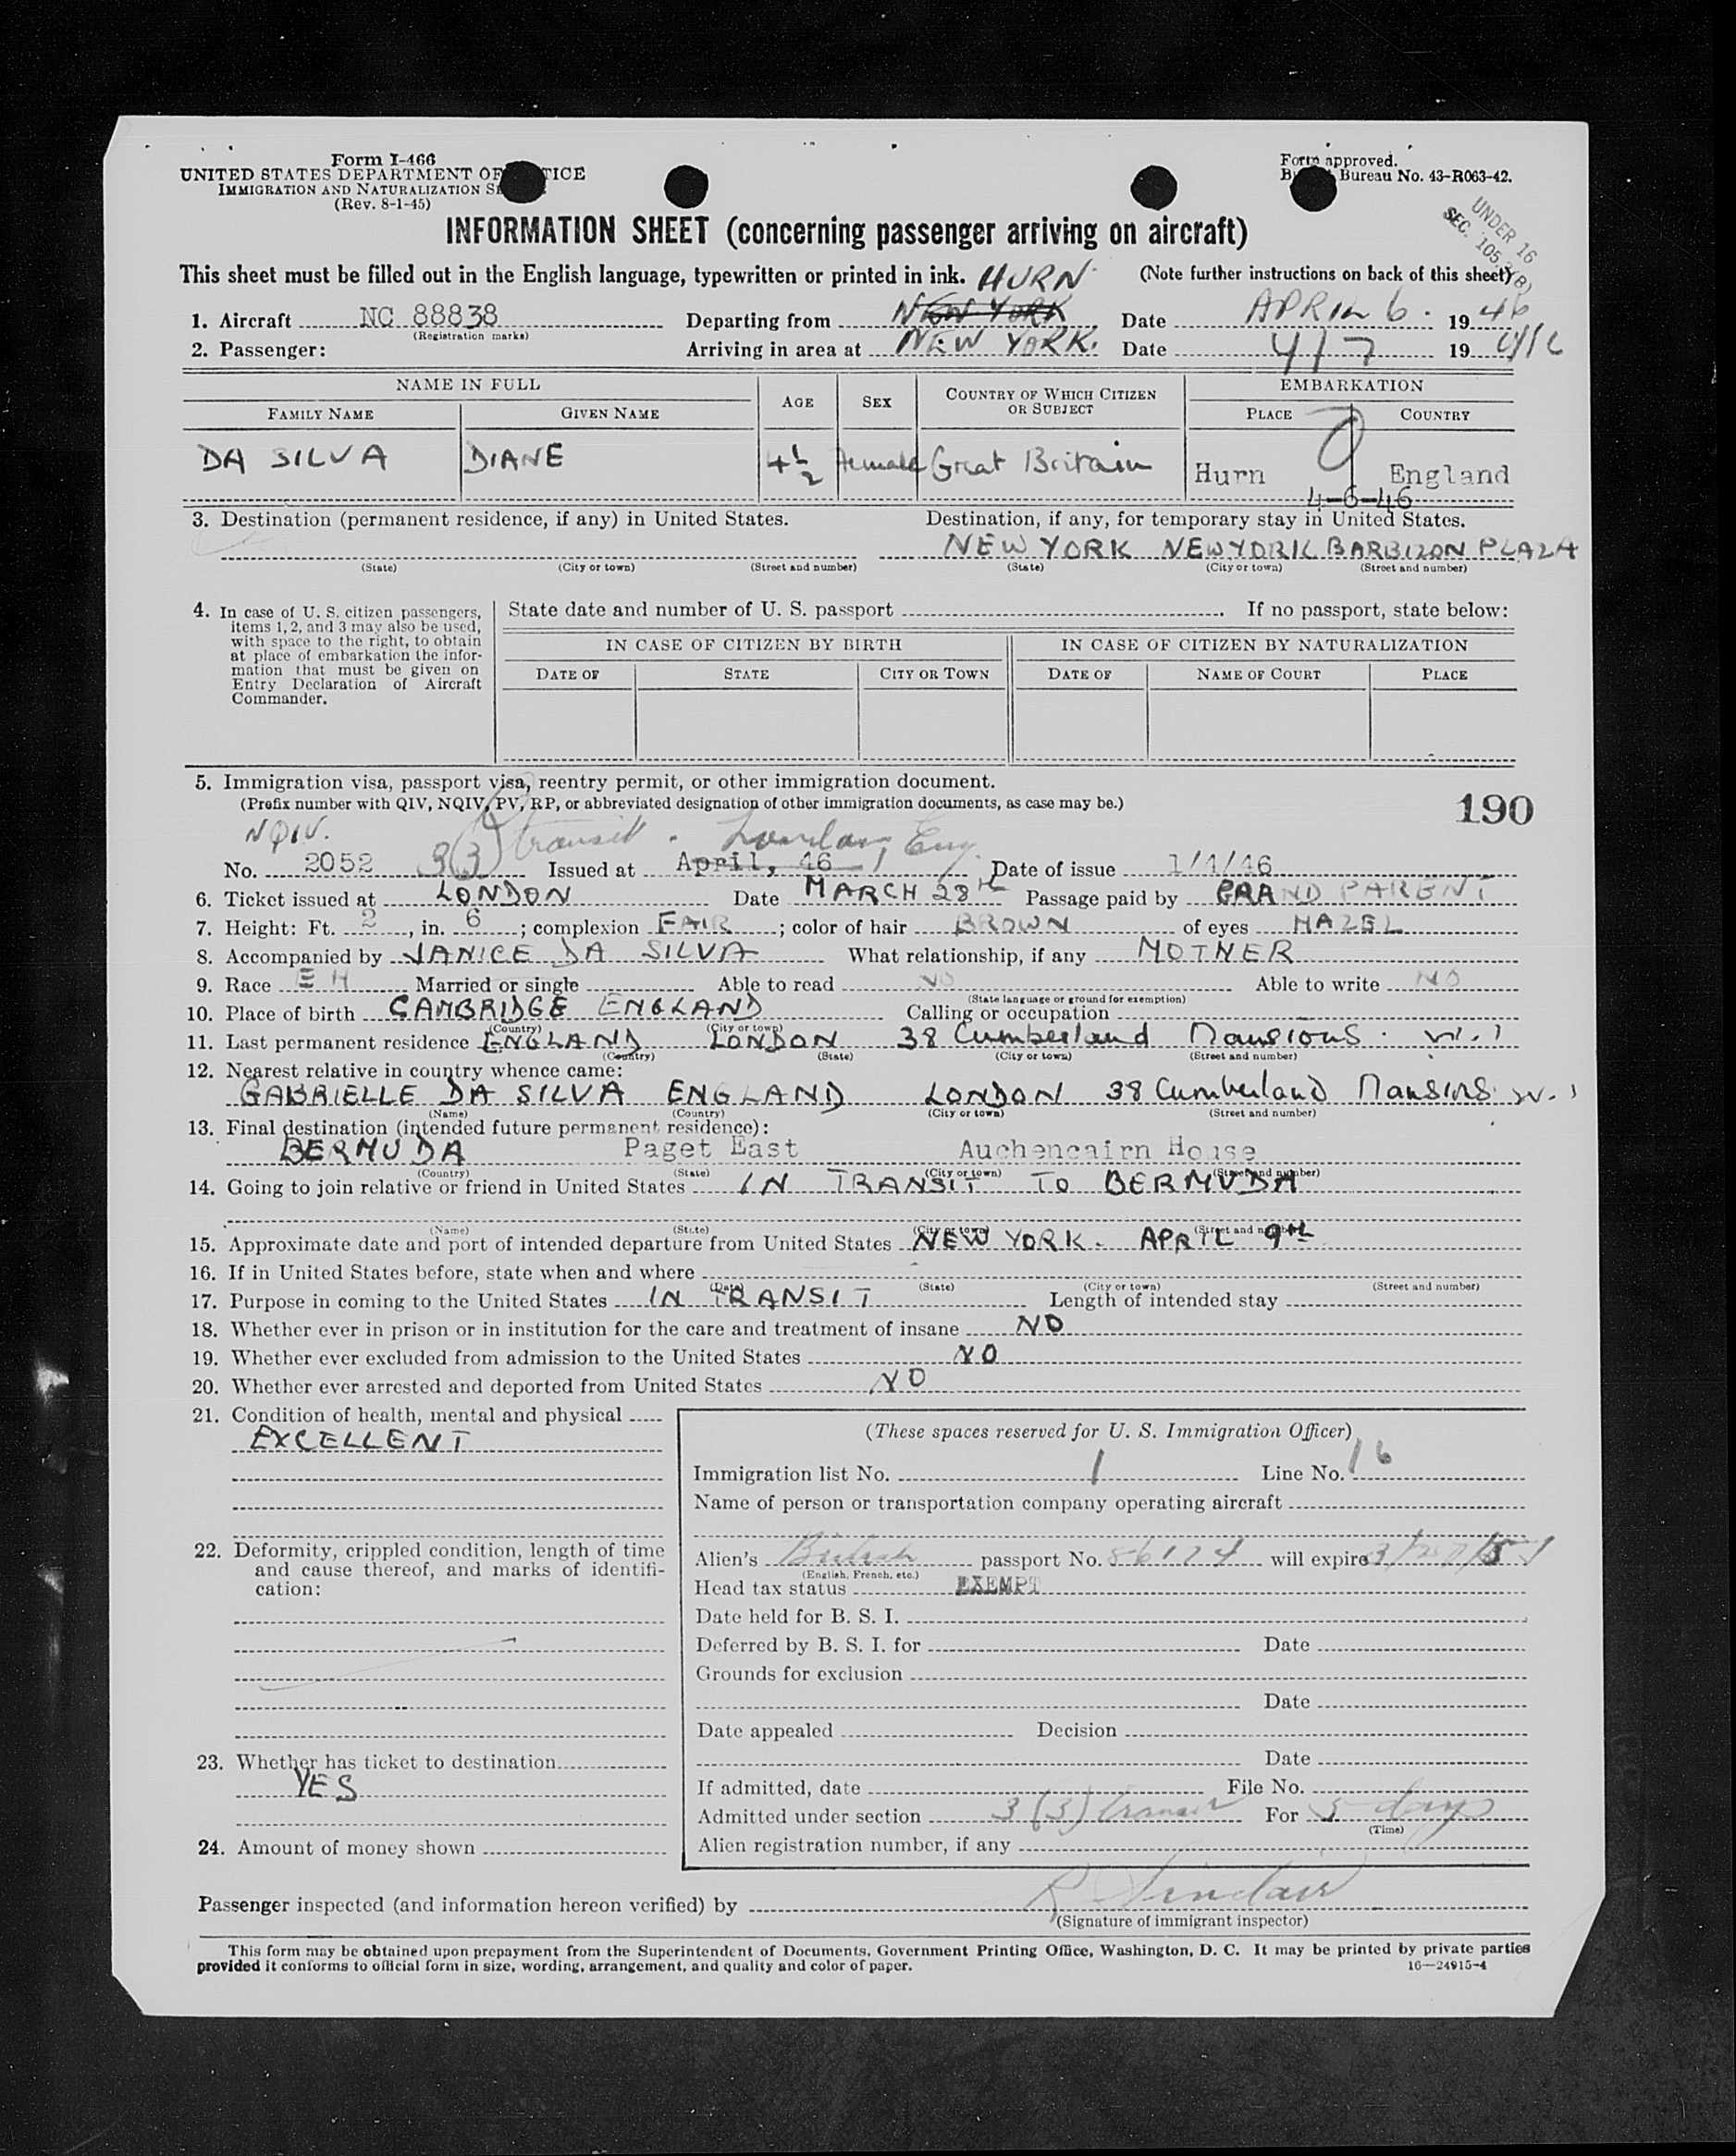 Form I-466
UNITED STATES DEPARTMENT OF TICE
IMMIGRATION AND NATURALIZATION S
(Rev. 8-1-45)
Form approved.
B Bureau No. 43-R063-42.
UNDER 16
SEC. 105 (B)
INFORMATION SHEET (concerning passenger arriving on aircraft)
This sheet must be filled out in the English language, typewritten or printed in ink. HURN (Note further instructions on back of this sheet)
1. Aircraft NC 88838 Departing from NEW YORK Date APRIL 6. 1946
(Registration marks)
2. Passenger: Arriving in area at NEW YORK. Date 4/7 19
NAME IN FULL AGE SEX COUNTRY OF WHICH CITIZEN OR SUBJECT EMBARKATION
FAMILY NAME GIVEN NAME PLACE COUNTRY
DA SILVA DIANE 4½ Female Great Britain Hurn England
4-6-46
3. Destination (permanent residence, if any) in United States. Destination, if any, for temporary stay in United States.
NEW YORK NEW YORK BARBIZON PLAZA
(State) (City or town) (Street and number) (State) (City or town) (Street and number)
4. In case of U. S. citizen passengers, items 1, 2, and 3 may also be used, with space to the right, to obtain at place of embarkation the information that must be given on Entry Declaration of Aircraft Commander.
State date and number of U. S. passport . If no passport, state below:
IN CASE OF CITIZEN BY BIRTH IN CASE OF CITIZEN BY NATURALIZATION
DATE OF STATE CITY OR TOWN DATE OF NAME OF COURT PLACE
5. Immigration visa, passport visa, reentry permit, or other immigration document.
(Prefix number with QIV, NQIV, PV, RP, or abbreviated designation of other immigration documents, as case may be.)
190
NQIV. 3(3) transit. London Eng.
No. 2052 Issued at April, 46 Date of issue 1/4/46
6. Ticket issued at LONDON Date MARCH 28th Passage paid by GRAND PARENT
7. Height: Ft. 2, in. 6; complexion FAIR; color of hair BROWN of eyes HAZEL
8. Accompanied by JANICE DA SILVA What relationship, if any MOTHER
9. Race Married or single Able to read NO Able to write NO
(State language or ground for exemption)
10. Place of birth CAMBRIDGE ENGLAND Calling or occupation
(Country) (City or town)
11. Last permanent residence ENGLAND LONDON 38 Cumberland Mansions. W.1
(Country) (State) (City or town) (Street and number)
12. Nearest relative in country whence came:
GABRIELLE DA SILVA ENGLAND LONDON 38 Cumberland Mansions W.1
(Name) (Country) (City or town) (Street and number)
13. Final destination (intended future permanent residence):
BERMUDA Paget East Auchencairn House
(Country) (State) (City or town) (Street and number)
14. Going to join relative or friend in United States IN TRANSIT TO BERMUDA
(Name) (State) (City or town) (Street and number)
15. Approximate date and port of intended departure from United States NEW YORK. APRIL 9th
16. If in United States before, state when and where
(Date) (State) (City or town) (Street and number)
17. Purpose in coming to the United States IN TRANSIT Length of intended stay
18. Whether ever in prison or in institution for the care and treatment of insane NO
19. Whether ever excluded from admission to the United States NO
20. Whether ever arrested and deported from United States NO
21. Condition of health, mental and physical
EXCELLENT
22. Deformity, crippled condition, length of time and cause thereof, and marks of identification:
23. Whether has ticket to destination
YES
24. Amount of money shown
(These spaces reserved for U. S. Immigration Officer)
Immigration list No. 1 Line No. 16
Name of person or transportation company operating aircraft
Alien's British passport No. 86174 will expire
(English, French, etc.)
Head tax status EXEMPT
Date held for B. S. I.
Deferred by B. S. I. for Date
Grounds for exclusion
Date
Date appealed Decision
Date
If admitted, date File No.
Admitted under section 3(3) transit For 5 days
(Time)
Alien registration number, if any
Passenger inspected (and information hereon verified) by R Sinclair
(Signature of immigrant inspector)
This form may be obtained upon prepayment from the Superintendent of Documents, Government Printing Office, Washington, D. C. It may be printed by private parties
provided it conforms to official form in size, wording, arrangement, and quality and color of paper. 16—24915-4